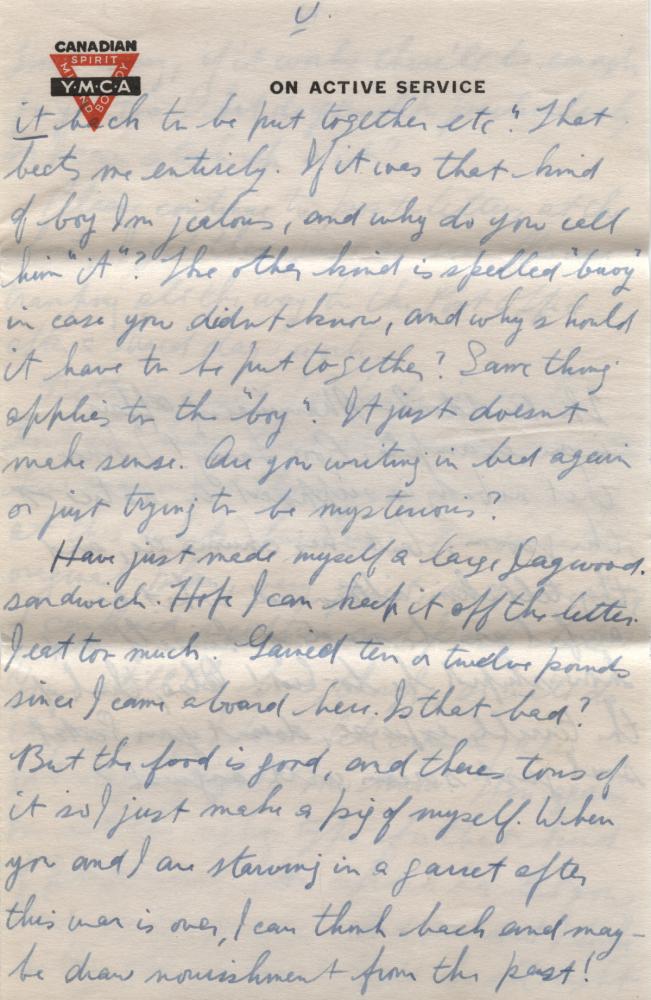 V.
CANADIAN
SPIRIT
MIND
Y·M·C·A
BODY
ON ACTIVE SERVICE
it back to be put together etc". That
beats me entirely. If it was that kind
of boy I'm jealous, and why do you call
him "it"? The other kind is spelled "buoy"
in case you didnt know, and why should
it have to be put together? Same thing
applies to the "boy". It just doesnt
make sense. Are you writing in bed again
or just trying to be mysterious?
Have just made myself a large Dagwood.
sandwich. Hope I can keep it off the letter.
I eat too much. Gained ten or twelve pounds
since I came aboard here. Is that bad?
But the food is good, and theres tons of
it so I just make a pig of myself. When
you and I are starving in a garret after
this war is over, I can think back and may-
be draw nourishment from the past!